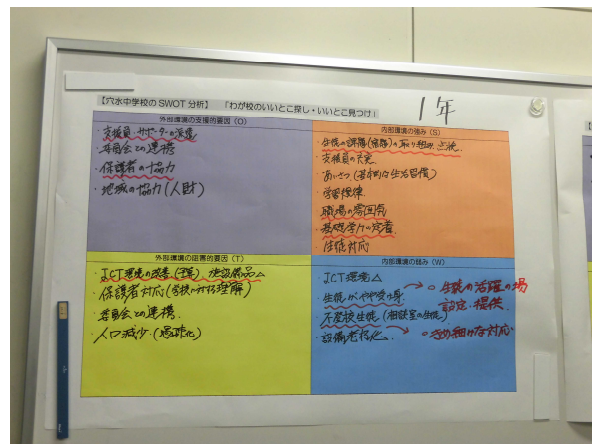 【穴水中学校のSWOT分析】 「わが校のいいとこ探し・いいとこ見つけ」
1年
外部環境の支援的要因（O）
・支援員・サポーターの派遣
・委員会との連携
・保護者の協力
・地域の協力（人財）
内部環境の強み（S）
・生徒の課題(宿題)の取り組み
・支援員の充実
・あいさつ（基本的な生活習慣）
・学習規律
・職場の雰囲気
・基礎学力の定着
・生徒対応
外部環境の阻害的要因（T）
・ICT環境の 施設備品△
・保護者対応（学校に対する理解）
・委員会との連携
・人口減少（過疎化）
内部環境の弱み（W）
・ICT環境△
・生徒がやや受け身
・不登校生徒（相談室の生徒）
・設備老朽化
→ ○生徒の活躍の場
設定・提供
→ ○きめ細かな対応